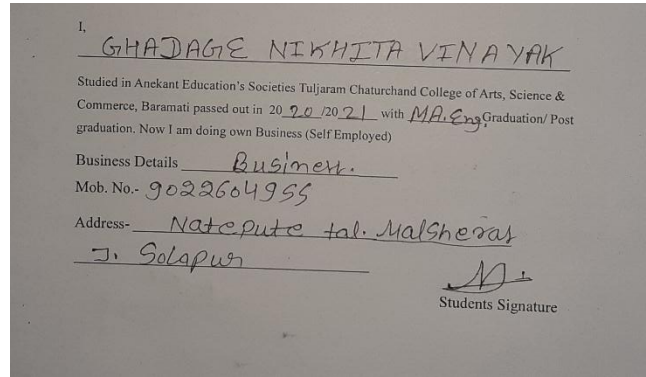 I,
GHADAGE NIKHITA VINAYAK
Studied in Anekant Education's Societies Tuljaram Chaturchand College of Arts, Science &
Commerce, Baramati passed out in 2020/2021 with MA.Eng Graduation/ Post
graduation. Now I am doing own Business (Self Employed)
Business Details Business.
Mob. No.- 9022604955
Address- Natepute tal. Malsheras
J. Solapur
Students Signature